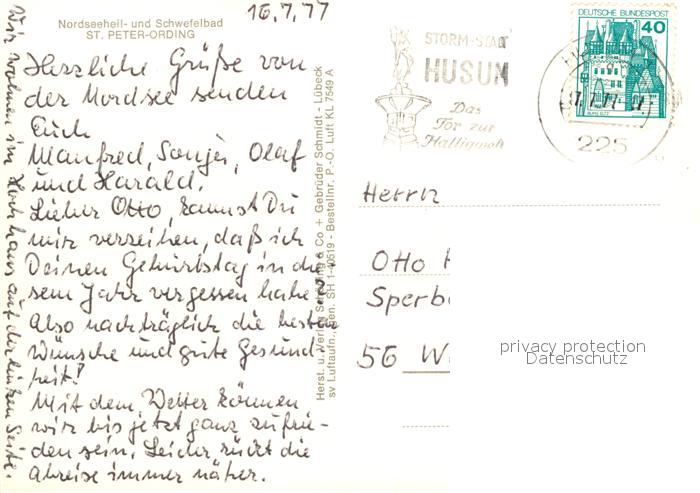 16.7.77
Nordseeheil- und Schwefelbad
ST. PETER-ORDING
Herzliche Grüße von
der Nordsee senden
Euch
Manfred, Sonja, Olaf
und Harald.
Lieber Otto, kannst Du
mir verzeihen, daß ich
Deinen Geburtstag in die-
sem Jahr vergessen habe?
Also nachträglich die besten
Wünsche und gute Gesund-
heit!
Mit dem Wetter können
wir bis jetzt ganz zufrie-
den sein. Leider rückt die
Abreise immer näher.
Wir wohnen im Hochhaus auf der linken Seite.
Herst. u. Verlag & Co + Gebrüder Schmidt - Lübeck
sv Luftaufn., SH 1-40519 - Bestellnr. P.-O. Luft KL 7549 A
STORM-STADT
HUSUM
Das
Tor zur
Halligwelt
DEUTSCHE BUNDESPOST
40
225
Herrn
Otto
Sperb
56 W
privacy protection
Datenschutz